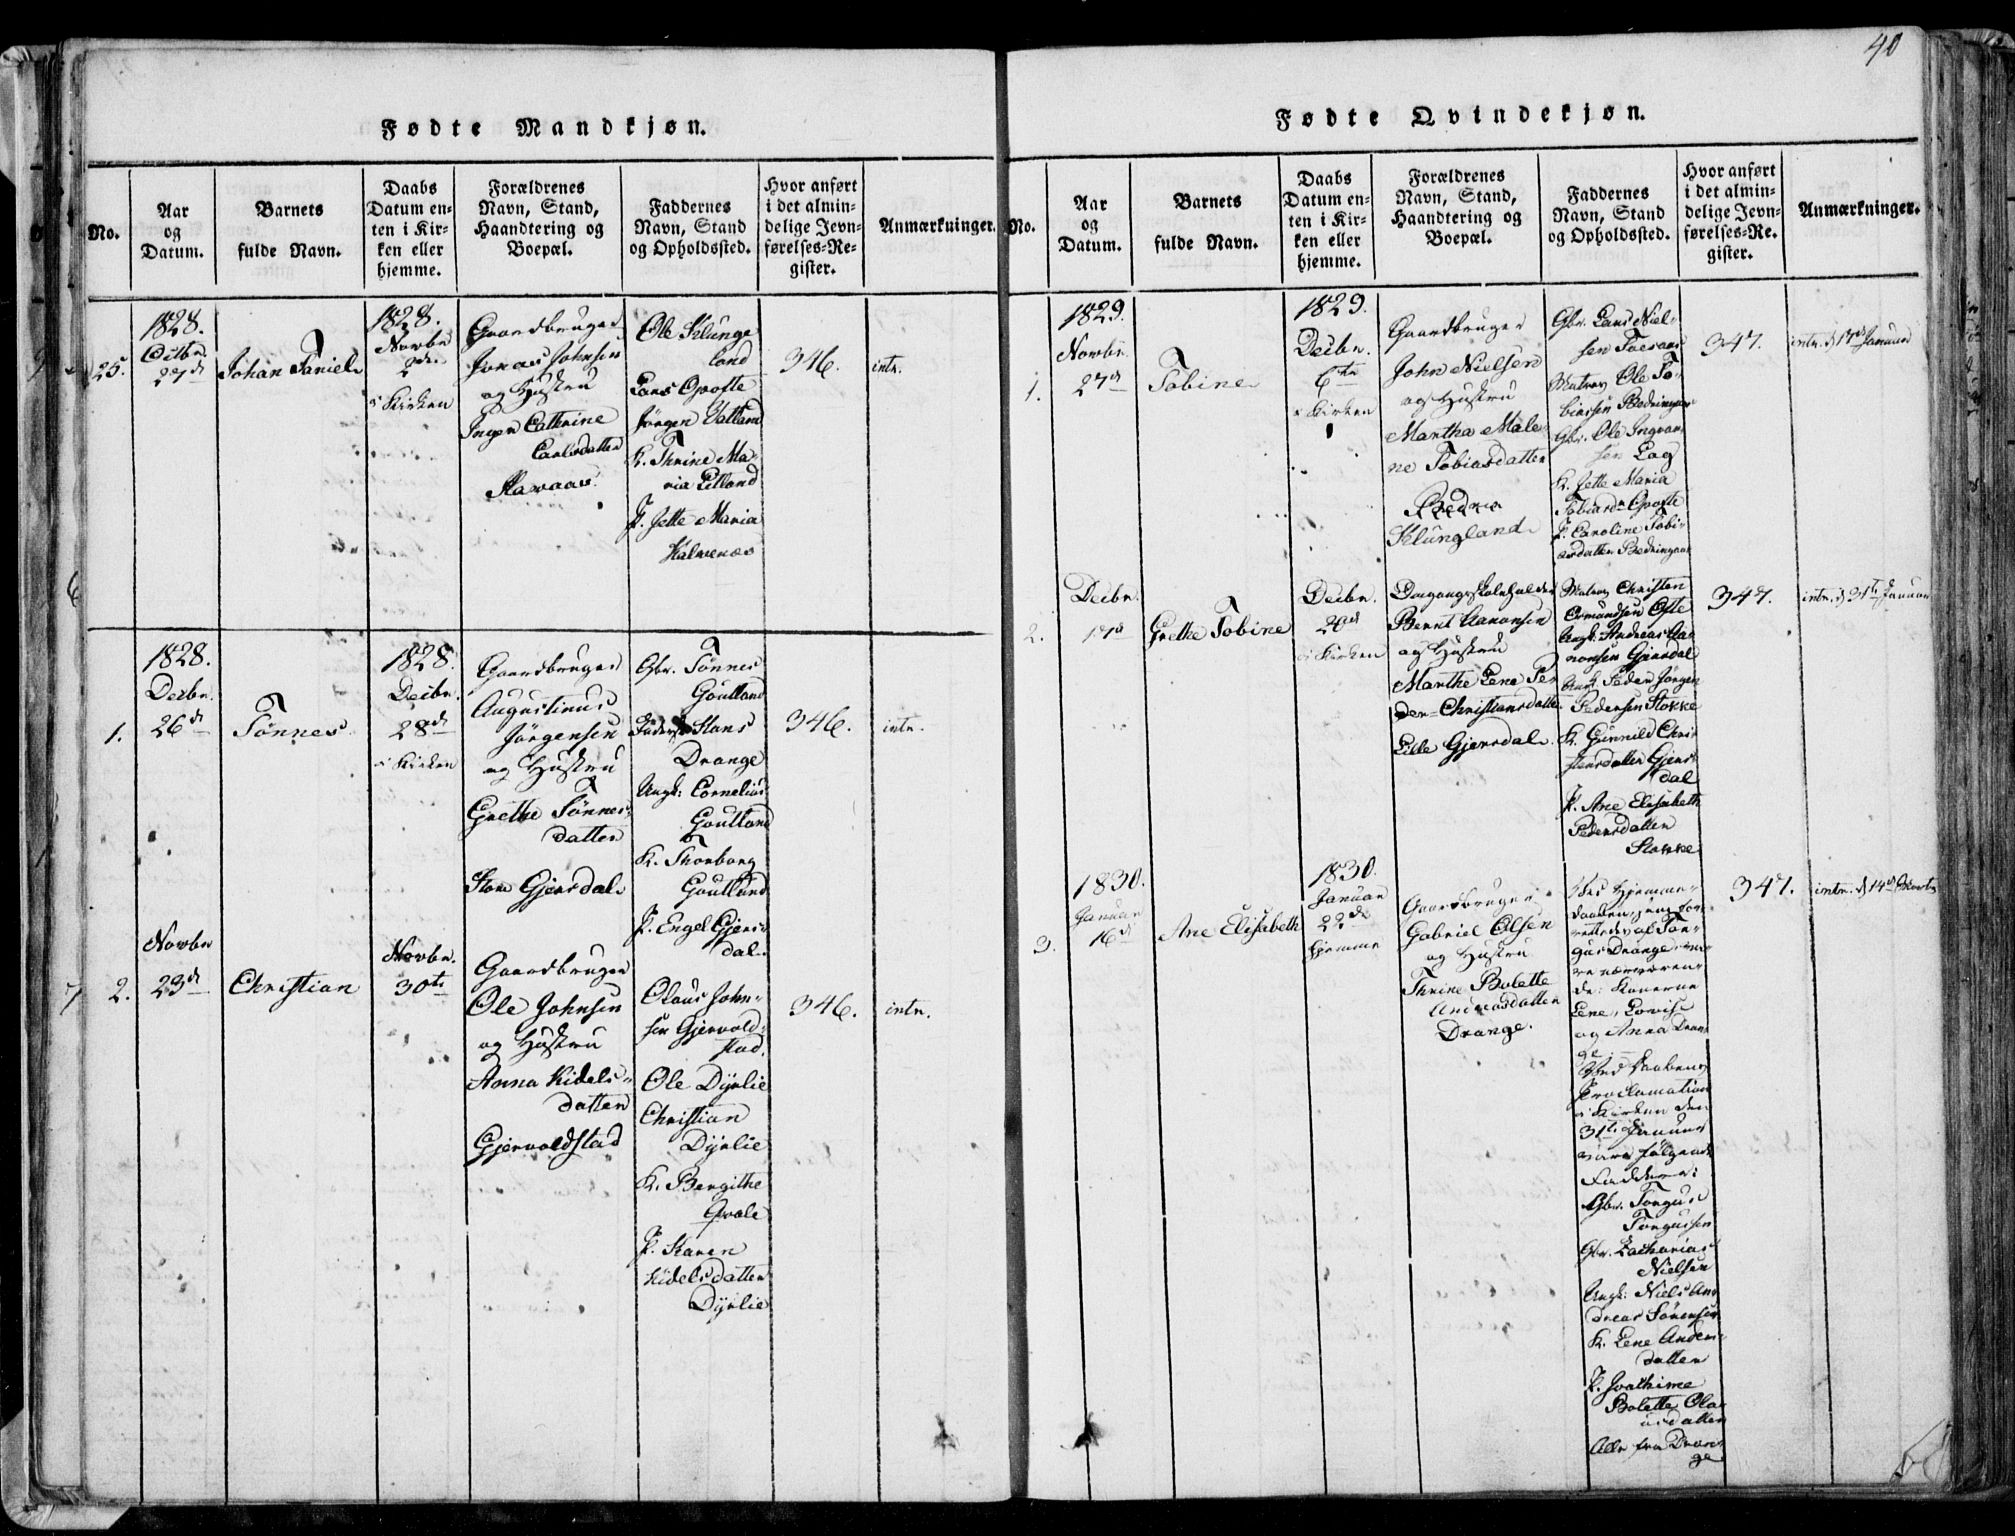 40
Fødte Mandkjøn.
No.
Aar
og
Datum.
Barnets
fulde Navn.
Daabs
Datum en-
ten i Kir-
ken eller
hjemme.
Forældrenes
Navn, Stand,
Haandtering og
Boepæl.
Faddernes
Navn, Stand
og Opholdssted.
Hvor anført
i det almin-
delige Jevn-
førelses-Re-
gister.
Anmærkninger.
25.
1828.
Octbr.
27de
Johan Daniel
1828.
Novbr
2den
i Kirken
Gaardbruger
Jonas Johnsen
og Hustru
Inger Cathrine
Carlsdatter
Ole Klunge
land
Lars Opofte
Jørgen Vatland
K. Thrine Ma-
ria Eitland
P. Jette Maria
Kalvenæs
346.
intr.
1.
1828.
Decbr.
26de
Tønnes
1828.
Decbr.
28de
i Kirken
Gaardbruger
Augustinus
Jørgensen
og Hustru
Grethe Tønnes-
datter
Store Gjersdal
Gbr. Tønnes
Goutland
Hans
Drange
Ungk: Cornelius
Goutland
K. Thorborg
Goutland
P. Engel Gjers-
dal.
346.
intr.
2.
Novbr
23de
Christian
Novbr.
30te
Gaardbruger
Ole Johnsen
og Hustru
Anna Kidels-
datter
Gjervoldstad
Olaus John-
sen Gjervold-
stad.
Ole Dyrlie
Christian
Dyrlie
K. Bergithe
Qvale
P. Karen
Kidelsdatter
Dyrlie
346.
intr.
Fødte Qvindekjøn.
No.
Aar
og
Datum.
Barnets
fulde Navn.
Daabs
Datum en-
ten i Kir-
ken eller
hjemme.
Forældrenes
Navn, Stand,
Haandtering og
Boepæl.
Faddernes
Navn, Stand
og Opholdssted.
Hvor anført
i det almin-
delige Jevn-
førelses-Re-
gister.
Anmærkninger.
1.
1829.
Novbr.
27de
Tobine
1829.
Decbr.
6te
i Kirken
Gaardbruger
John Nielsen
og Hustru
Martha Male-
ne Tobiasdatter
Klungland
Gbr. Lars Niel-
sen
Matros Ole To-
biassen
Gbr. Ole Ingvar-
sen
K. Jette Maria
Tobiasdr Opofte
P. Caroline Tobi-
asdatter
347.
intr. d 17de Januar
2.
Decbr.
17de
Grethe Tobine
Decbr.
20de
i Kirken
Omgangsskoleholder
Bernt Aanonsen
og Hustru
Marthe Lene Pe-
der-Christiansdatter
Lille Gjersdal
Matros Christen
Osmundsen Ofte
Ungk. Andreas Aa-
nonsen Gjersdal
Ungk. Peder Jørgen
Pedersen Stokke
K. Gunnild Chri-
stensdatter Gjers-
dal
P. Ane Elisabeth
Pedersdatter
Stokke
347.
intr. d 31te Januar
3.
1830.
Januar
16de
Ane Elisabeth
1830.
Januar
22de
hjemme
Gaardbruger
Gabriel Olsen
og Hustru
Thrine Bolette
Andreasdatter
Drange.
Ved Hjemme-
daaben, som for-
rettedes af Tor-
gus Drange, va-
re nærværen-
de: Konerne
Lene, Lovise
og Anna Dran-
ge.
Ved Daabens
Proclamation
i Kirken den
31te Januar
vare følgende
Faddere:
Gbr. Torgus
Torgussen
Gbr. Zacharias
Nielsen
Ungk: Niels An-
dreas Sørensen
K. Lene Anders-
datter
P. Joachime
Bolette Ola-
usdatter
Alle fra Dran-
ge
347.
intr. d 14de Marts